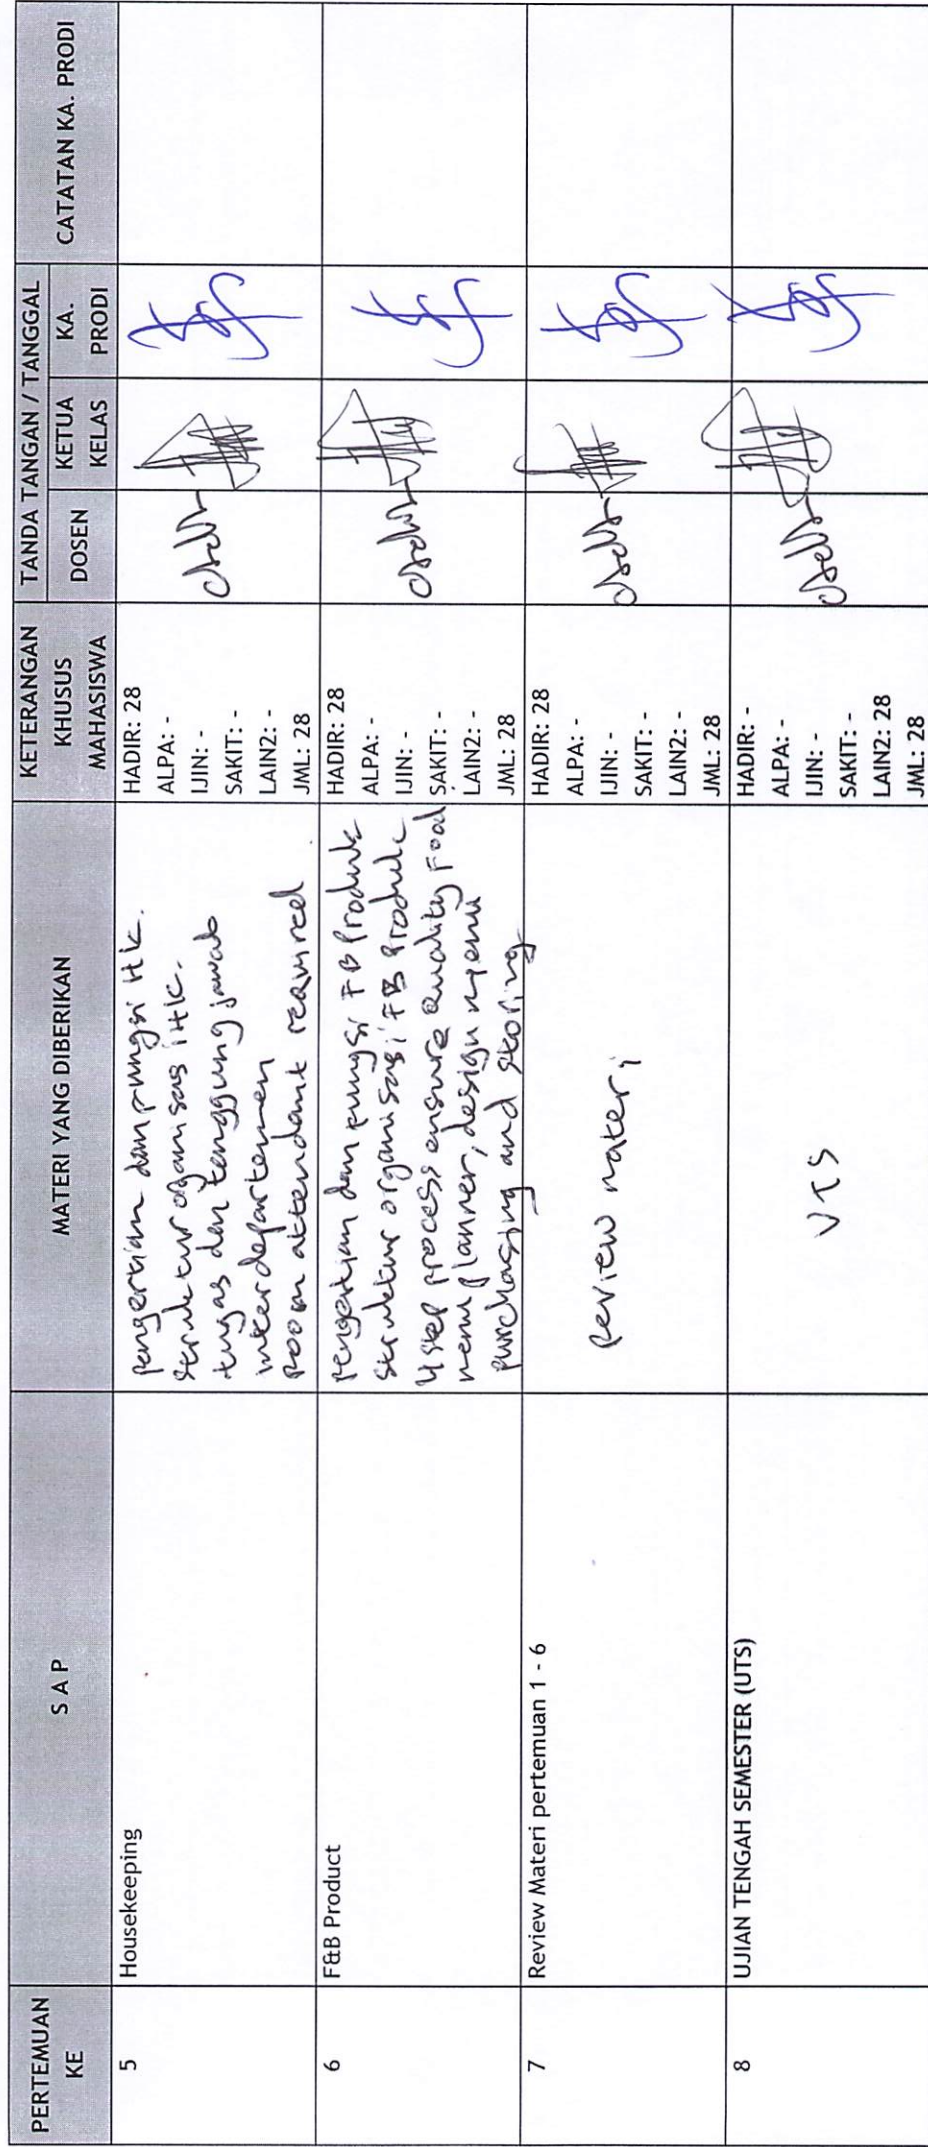 PERTEMUAN KE
S A P
MATERI YANG DIBERIKAN
KETERANGAN KHUSUS MAHASISWA
TANDA TANGAN / TANGGAL
DOSEN
KETUA KELAS
KA. PRODI
CATATAN KA. PRODI
5
Housekeeping
pengertian dan pungsi HK.
struktur organisasi HK.
tugas dan tanggung jawab
interdepartemen
room attendant required
HADIR: 28
ALPA: -
IJIN: -
SAKIT: -
LAIN2: -
JML: 28
6
F&B Product
pengertian dan pungsi FB Produk
struktur organisasi FB Produk
4 step process ensure quality Food
menu planner, design menu
purchasing and storing
HADIR: 28
ALPA: -
IJIN: -
SAKIT: -
LAIN2: -
JML: 28
7
Review Materi pertemuan 1 - 6
review materi
HADIR: 28
ALPA: -
IJIN: -
SAKIT: -
LAIN2: -
JML: 28
8
UJIAN TENGAH SEMESTER (UTS)
UTS
HADIR: -
ALPA: -
IJIN: -
SAKIT: -
LAIN2: 28
JML: 28